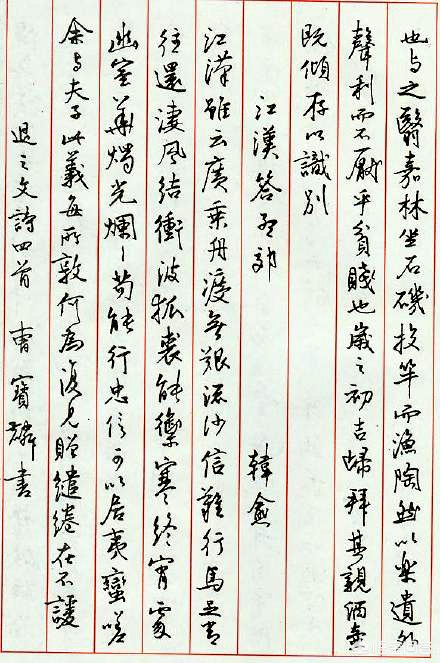 也与之翳嘉林坐石磯投竿而漁陶然以樂遺外
聲利而不厭乎貧賤也歲之初吉歸拜其親酒壺
既傾序以識別
江漢答孟郊 韓愈
江漢雖云廣乘舟渡無艱流沙信難行馬足常
往還淒風結衝波狐裘能禦寒終宵處
幽室華燭光爛〻苟能行忠信可以居夷蠻嗟
余与夫子此義每所敦何為復見贈繾綣在不諼
退之文詩四首 曹寶麟書